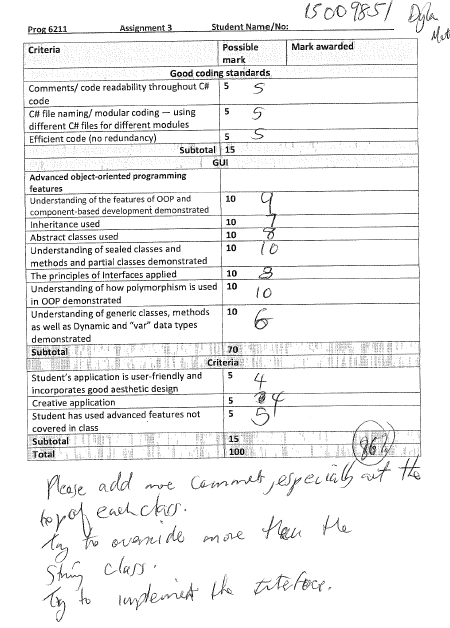 15009851 Dyla
Prog 6211 Assignment 3 Student Name/No:
Criteria Possible mark Mark awarded
Good coding standards
Comments/ code readability throughout C# code 5 5
C# file naming/ modular coding — using different C# files for different modules 5 5
Efficient code (no redundancy) 5 5
Subtotal 15
GUI
Advanced object-oriented programming features
Understanding of the features of OOP and component-based development demonstrated 10 9
Inheritance used 10 7
Abstract classes used 10 8
Understanding of sealed classes and methods and partial classes demonstrated 10 10
The principles of Interfaces applied 10 8
Understanding of how polymorphism is used in OOP demonstrated 10 10
Understanding of generic classes, methods as well as Dynamic and "var" data types demonstrated 10 6
Subtotal 70
Criteria
Student's application is user-friendly and incorporates good aesthetic design 5 4
Creative application 5 4
Student has used advanced features not covered in class 5 5
Subtotal 15
Total 100 86%
Please add more comments, especially at the
top of each class.
Try to override more than the
String class.
Try to implement the interface.